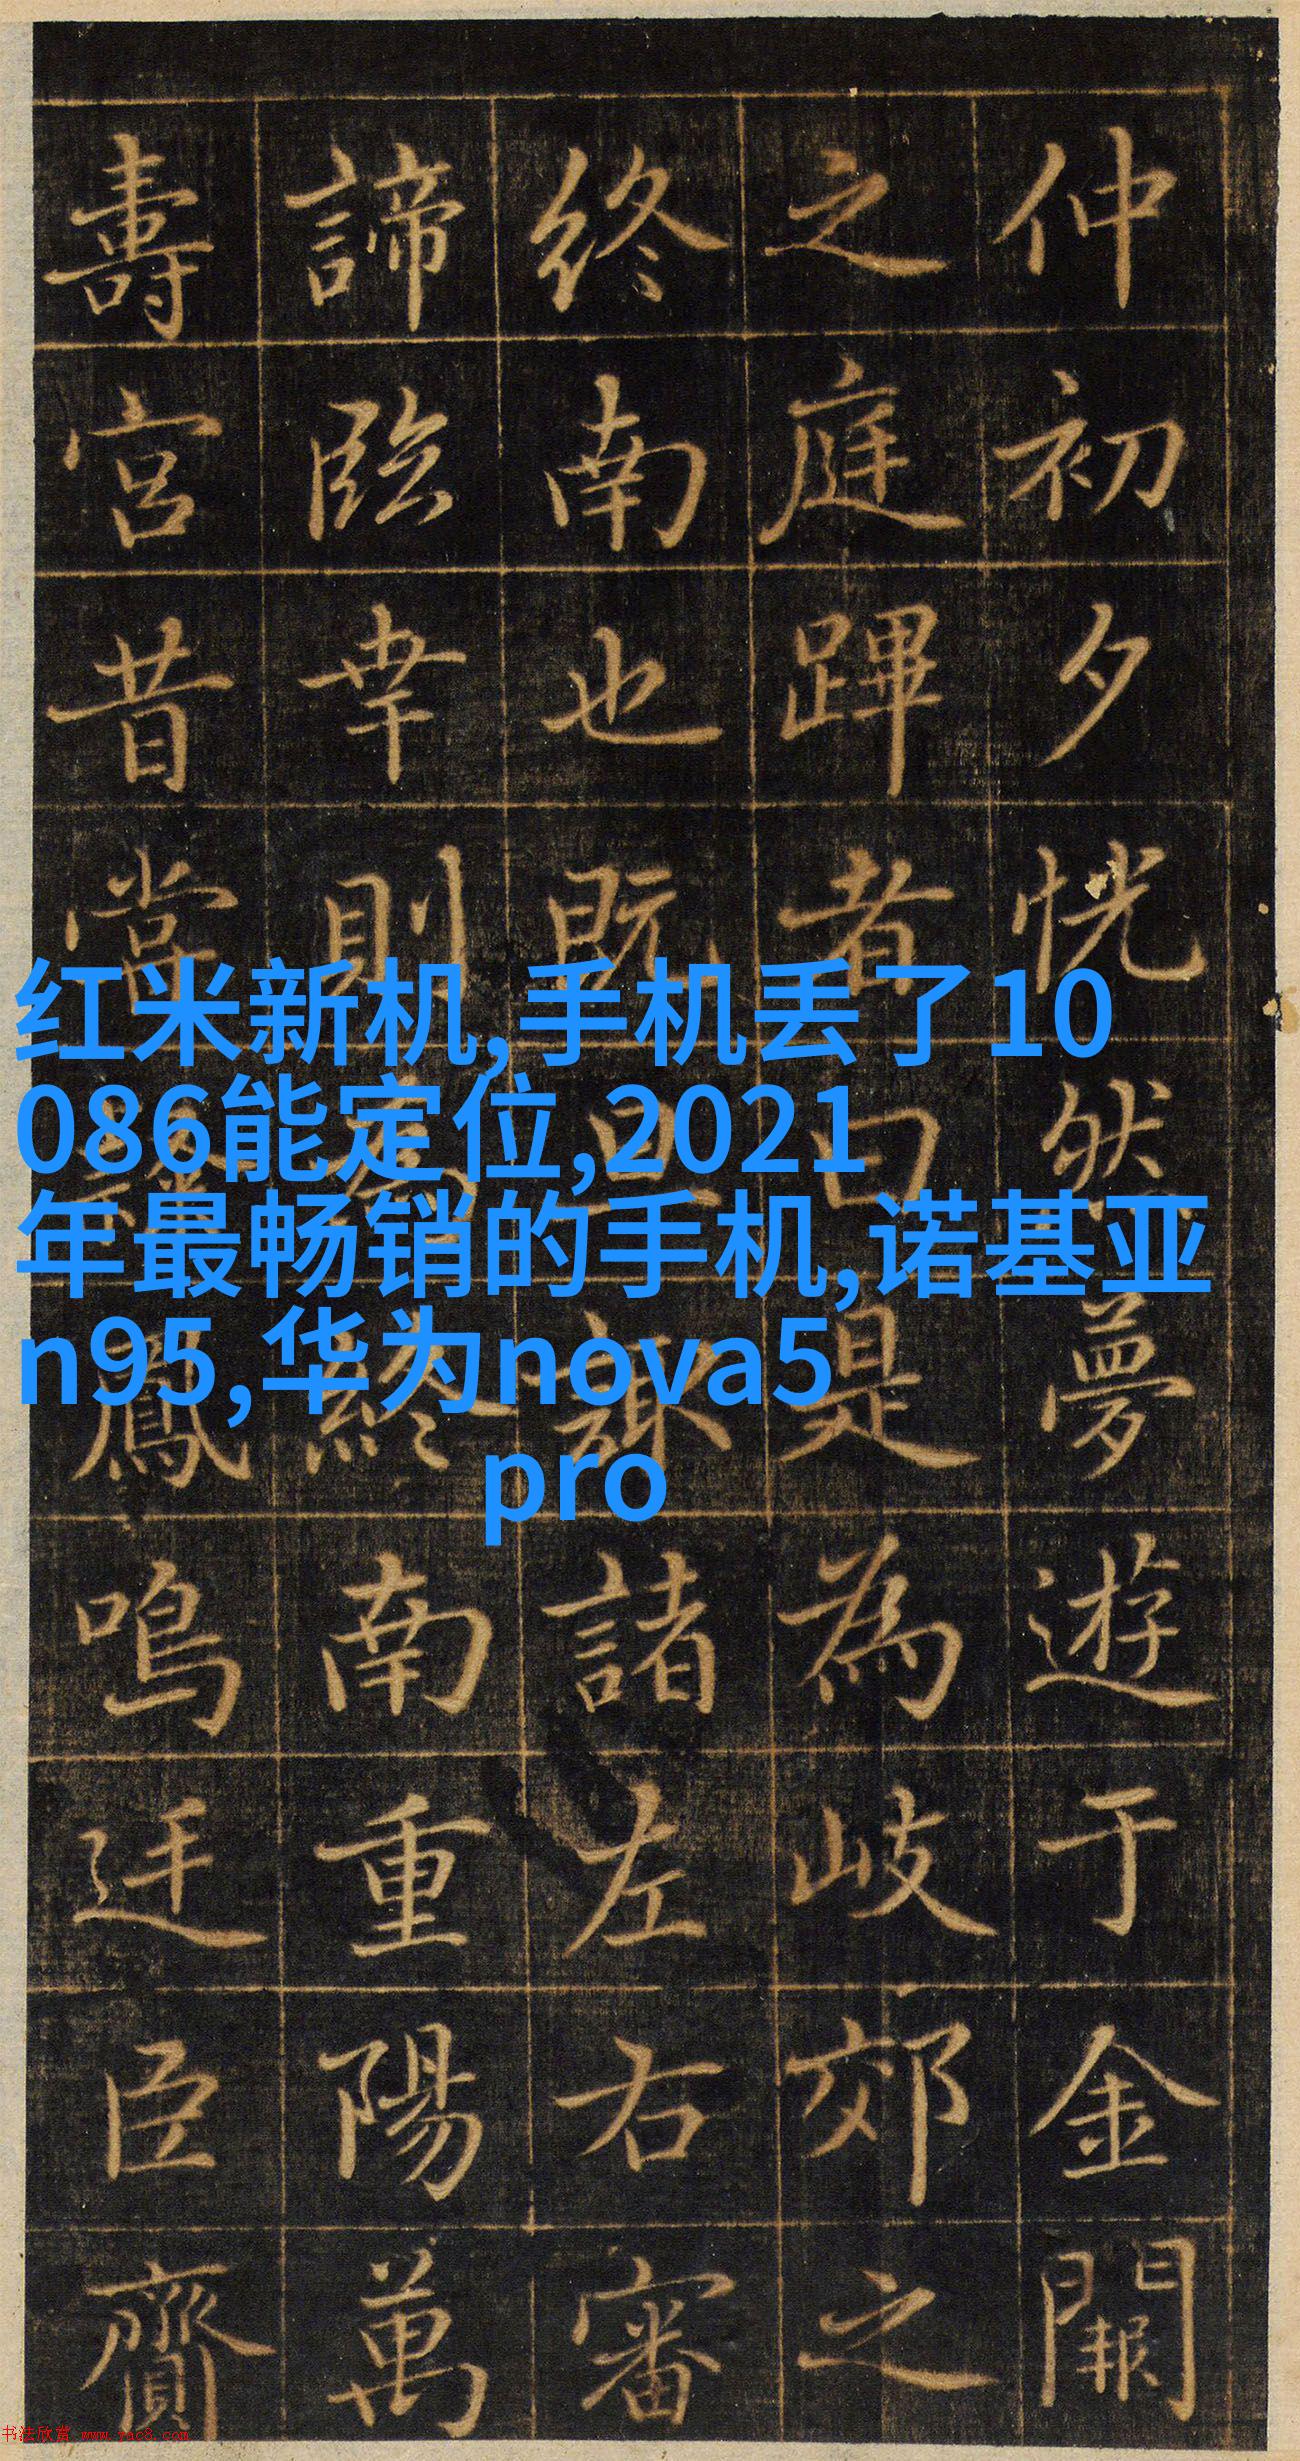 仲初夕恍然夢遊于金闕
之庭蹕者曰是為岐郊之
終南也既旦諏諸左右審
諦臨幸則終南重陽萬
壽宮昔當鳳鳴廷臣齎
红米新机,手机丢了10
086能定位,2021
年最畅销的手机,诺基亚
n95,华为nova5
pro
书法欣赏 www.yac8.com